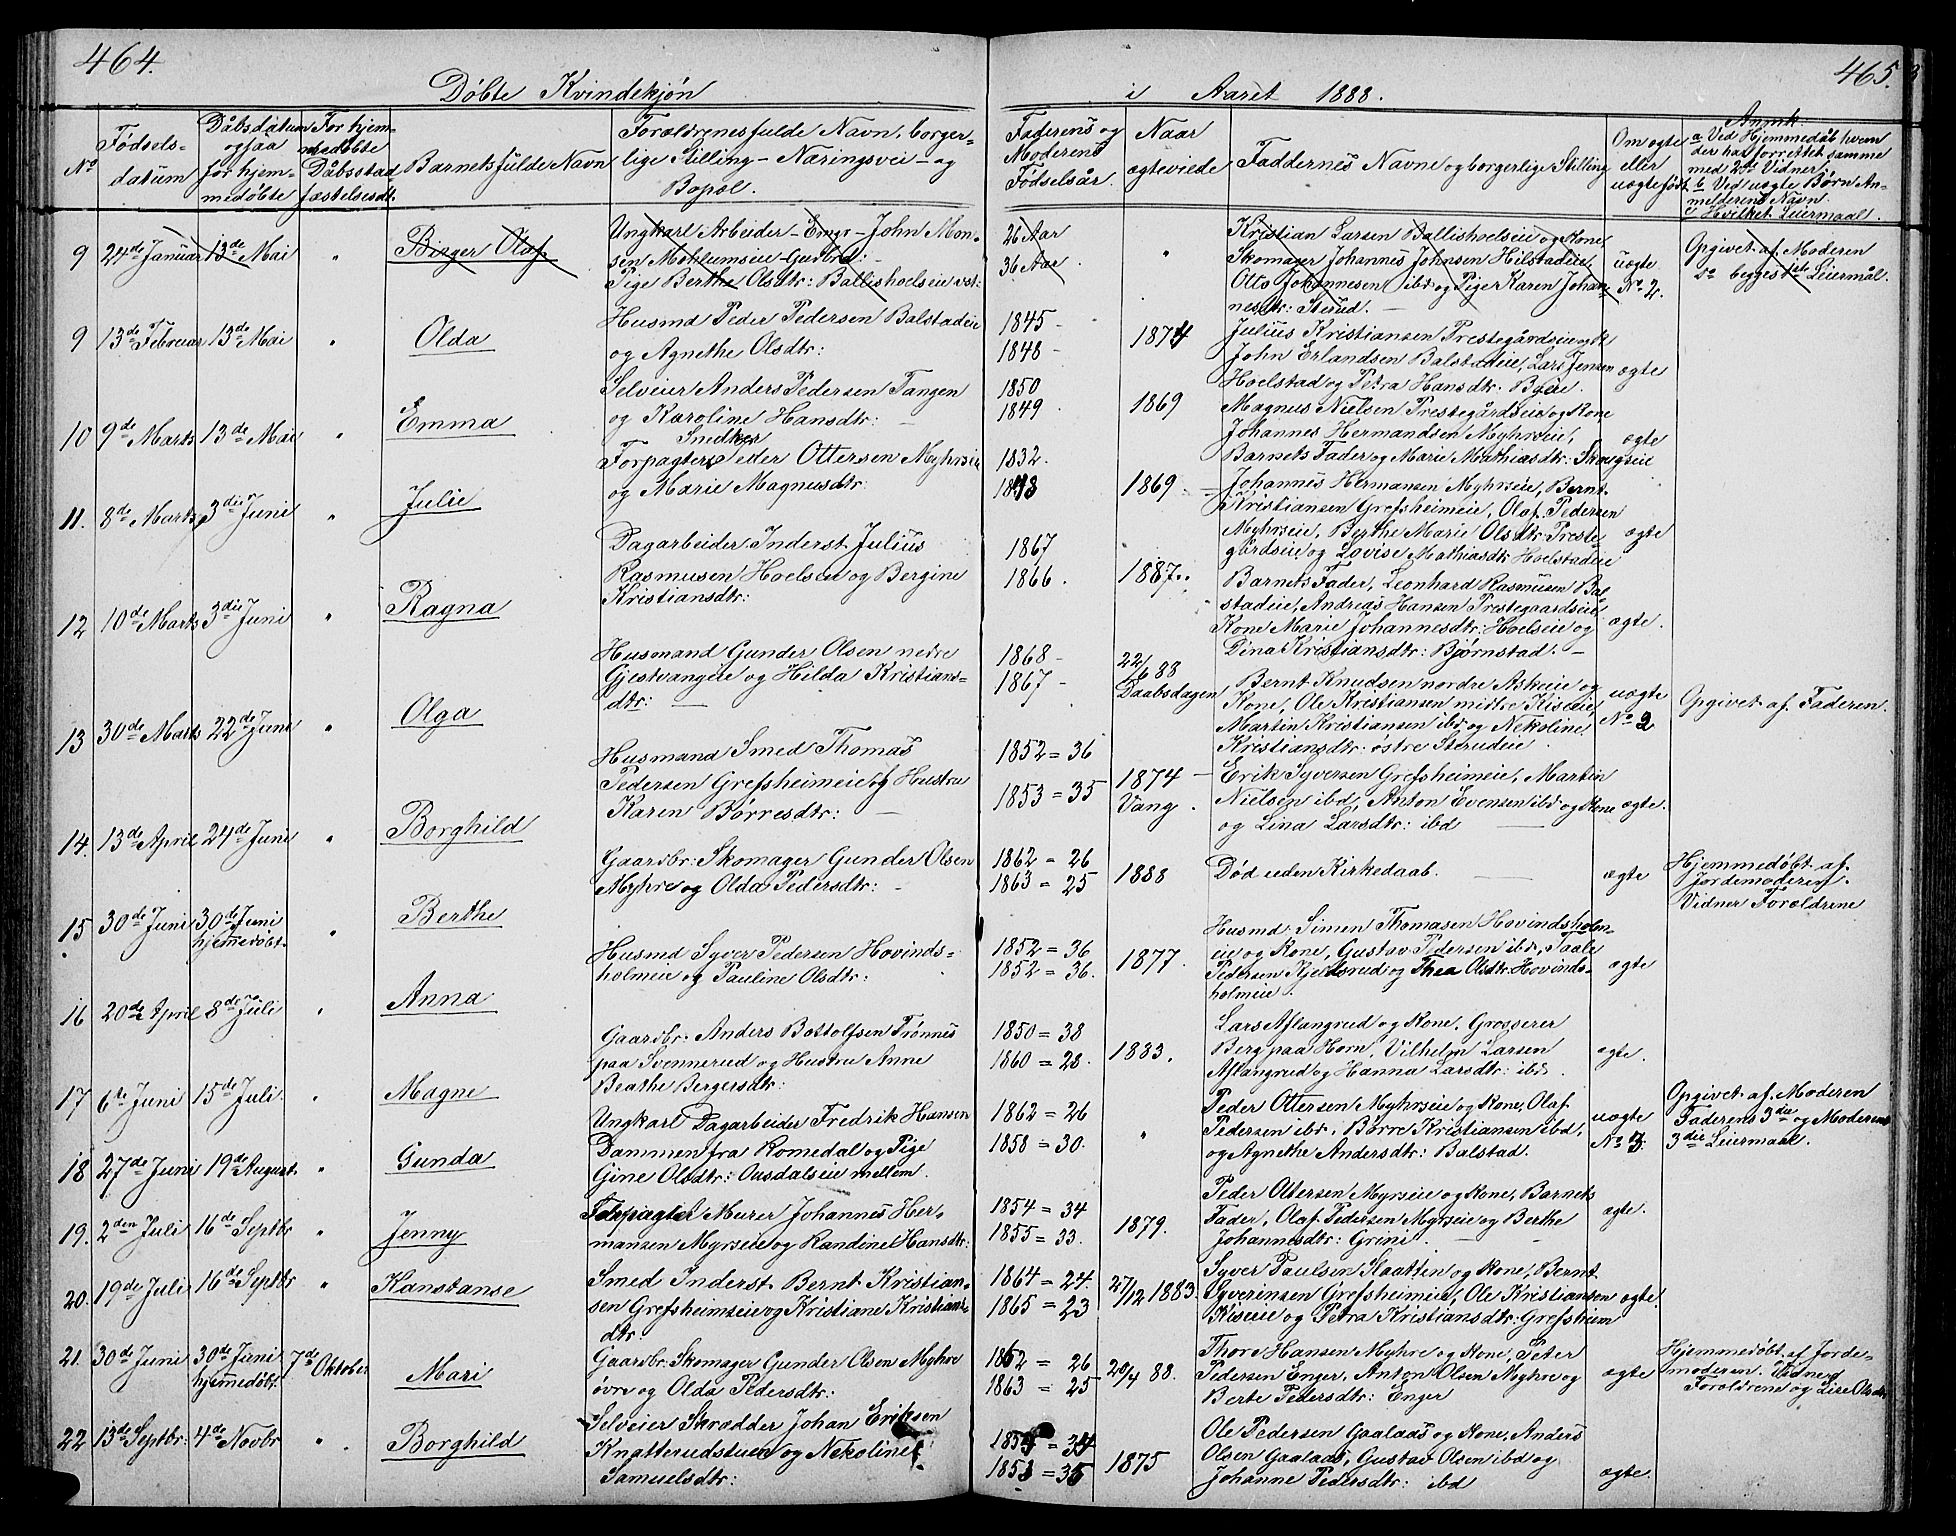 464.
Døbte Kvindekjøn
No
Fødsels-
datum
Dåbsdatum
ogsaa
for hjem-
medøbte
For hjem-
medøbte
Dåbsstad
fæstelsesdt.
Barnets fulde Navn
Forældrenes fulde Navn, borger-
lige Stilling - Næringsvei - og
Bopæl.
9 24de Januar 13de Mai " Birger Olaf
Ungkarl Arbeider - Emgr - John Mon-
sen Mohlumseie Gusbra:
Pige Berthe Olsdtr: Ballishoelseie vst:
9 13de Februar 13de Mai " Olda
Husmd Peder Pedersen Balstadeie
og Agnethe Olsdtr:
10 9de Marts 13de Mai " Emma
Selveier Anders Pedersen Tangen
og Karoline Hansdtr:
11. 8de Marts 3die Juni " Julie
Smedkes
Forpagter Peder Ottersen Myhrseie
og Marie Magnusdtr:
12 10de Marts 3die Juni " Ragna
Dagarbeider Inderst Julius
Rasmusen Hoelseie og Bergine
Kristiansdtr:
13 30de Marts 22de Juni " Olga
Husmand Gunder Olsen nedre
Gjestvangeie og Hilda Kristians-
dtr:
14. 13de April 24de Juni " Borghild
Husmand Smed Thomas
Pedersen Grefsheimeie og Hustru
Karen Børresdtr:
15 30de Juni 30de Juni
hjemmedøbt. " Berthe
Gaardbr: Skomager Gunder Olsen
Myhre og Olda Pedersdtr:
16 20de April 8de Juli " Anna
Husmd Syver Pedersen Hovinds-
holmeie og Pauline Olsdtr:
17 6te Juni 15de Juli " Magne
Gaardbr. Anders Bottolfsen Frønnes
paa Svennerud og Hustru Anne
Beathe Bergersdtr:
18 27de Juni 19de August. " Gunda
Ungkarl Dagarbeider Fredrik Hansen
Dammen fra Romedal og Pige
Gine Olsdtr: Ousdalseie mellem.
19. 2den Juli 16de Septbr " Jenny
Forpagter Murer Johannes Her-
mansen Myrseie og Randine Hansdtr:
20. 19de Juli 16de Septbr " Konstanse
Smed Inderst Bernt Kristian-
sen Grefsheimseie og Kristiane Kristians-
dtr:
21. 30de Juni 30de Juni
hjemmedøbt. 7de Oktober Mari
Gaardbr. Skomager Gunder Olsen Myhre
øvre og Olda Pedersdtr:
22 13de Septbr: 4de Novbr " Borghild
Selveier Skrædder Johan Eriksen
Knatterudstuen og Nekoline
Samuelsdtr:
465.
i Aaret 1888.
Faderens og
Moderens
Fødselsår.
Naar
ægteviede
Faddernes Navne og borgerlige Stilling
Om ægte
eller
uægte født.
Anmk:
a Ved Hjemmedåb hvem
der har forrettet samme
med 2de Vidner,
b Ved uægte Børn An-
melderens Navn.
c Hvilket Leiermaal.
26 Aar
36 Aar
"
Kristian Larsen Ballishoelseie og Kone,
Skomager Johannes Johnsen Hilstadeie,
Otto Johannesen ibd og Pige Karen Johan-
nesdtr: Sterud.
uægte
No 2.
Opgivet af Moderen
do begges 1ste Leiermål.
1845
1848
1874
Julius Kristiansen Prestegårdseie og K
John Erlandsen Balstadeie, Lars Jensen
Hoelstad og Petra Hansdtr. Byeie.
ægte
1850
1849
1869
Magnus Nielsen Prestegårdseie og Kone,
Johannes Hermandsen Myhrseie,
Barnets Fader og Marie Mathiasdtr. Skougseie
ægte
1832.
1843
1869
Johannes Hermansen Myhrseie, Bernt
Kristiansen Grefsheimeie, Olaf Pedersen
Myhrseie, Berthe Marie Olsdtr. Preste-
gårdseie og Lovise Mathiasdtr Hoelstadeie
ægte
1867
1866.
1887.
Barnets Fader, Leonhard Rasmusen Bal-
stadeie, Andreas Hansen Prestegaardseie,
Kone Marie Johannesdtr: Hoelseie og
Dina Kristiansdtr: Bjørnstad.
ægte.
1868
1867
22/6 88
Daabsdagen
Bernt Knudsen nordre Askeie og
Kone, Ole Kristiansen midtre Kiseie,
Martin Kristiansen ibd og Nekoline
Kristiansdtr: østre Sterudeie.
uægte
No 2
Opgivet af Faderen.
1852 = 36
1853 = 35
1874
Vang.
Erik Syversen Grefsheimeie, Martin
Nielsen ibd, Anton Evensen ibd og Kone
og Lina Larsdtr: ibd
ægte.
1862 = 26
1863 = 25
1888
Død uden Kirkedaab.
ægte
Hjemmedøbt af
Jordemoderen.
Vidner Forældrene
1852 = 36
1852 = 36.
1877.
Husmd: Simen Thomasen Hovindsholm-
eie og Kone, Gustav Pedersen ibd, Taale
Pedersen Kjeldsrud og Thea Olsdtr: Hovinds-
holmeie.
ægte
1850 = 38
1860 = 28.
1883.
Lars Aflangrud og Kone, Grosserer
Berg paa Horn, Vilhelm Larsen
Aflangrud og Hanna Larsdtr: ibd.
ægte.
1862 = 26
1858 = 30.
"
Peder Ottersen Myhrseie og Kone, Olaf
Pedersen ibd. Børre Kristiansen ibd,
og Agnethe Andersdtr: Balstad.
uægte
No 3.
Opgivet af Moderen
Faderens 3die og Moderens
3die Leiermaal.
1854 = 34
1855 = 33.
1879.
Peder Ottersen Myrseie og Kone, Barnets
Fader, Olaf Pedersen Myrseie og Berthe
Johannesdtr: Grini.
ægte.
1864 = 24.
1865 = 23
27/12 1883.
Syver Paulsen Kaatten og Kone, Bernt
Syverinsen Grefsheimeie, Ole Kristiansen
Kiseie og Petra Kristiansdtr: Grefsheim
ægte.
1862 = 26
1863 = 25
20/4 88.
Thor Hansen Myhre og Kone, Peter
Pedersen Enger, Anton Olsen Myhre og
Berte Pedersdtr: Enger
ægte
Hjemmedøbt af Jorde-
moderen. Vidner
Forældrene og Lise Olsdtr
1854 = 34
1853 = 35
1875
Ole Pedersen Gaalaas og Kone, Anders
Olsen Gaalaas, Gustav Olsen ibd og
Johanne Pedersdtr: ibd
ægte.